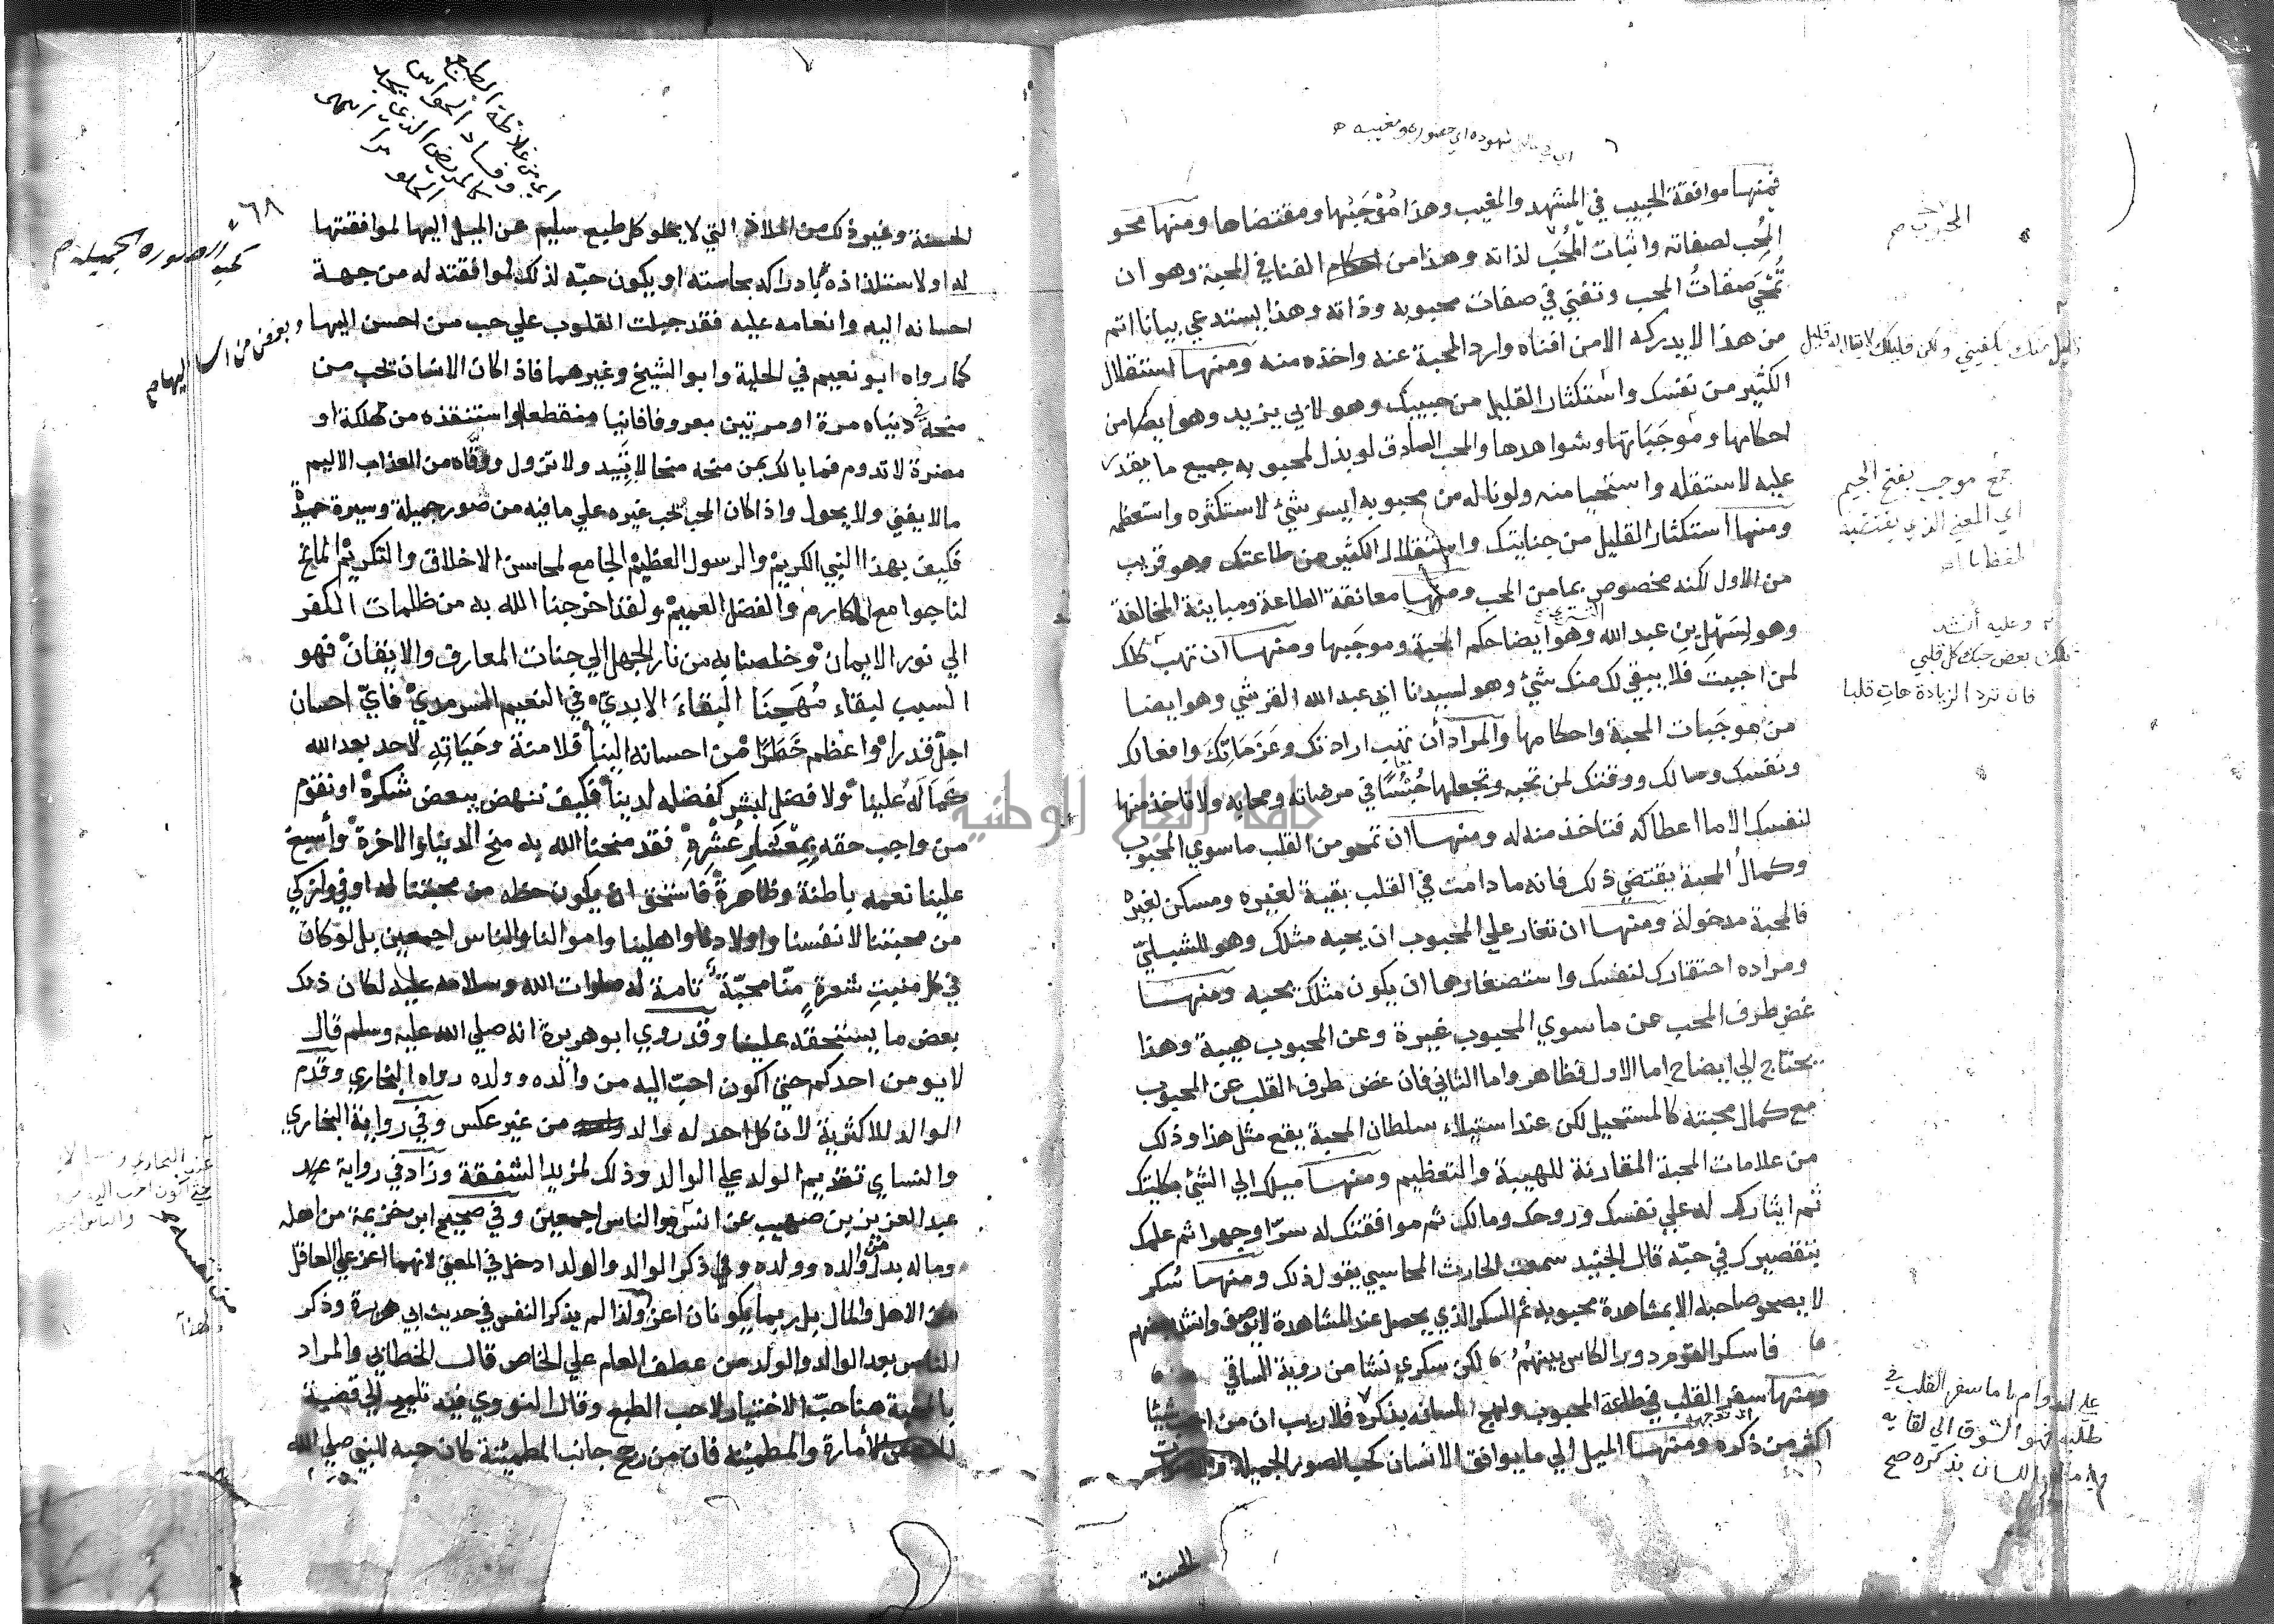 فمنها موافقة الحبيب في المشهد والمغيب وهذا مُوْجَبُها ومقتضاها ومنها محو
المُحِب لصفاته واثبات المُحَب لذاته وهذا من احكام الفنا في المحبة وهو ان
تُمْحَي صفاتُ المحب وتفني في صفات محبوبه وذاته وهذا يستدعي بيانا اتم
من هذا لا يدركه الا من افناه وارد المحبة عنه واخذه منه ومنها استقلال
الكثير من نفسك واستكثار القليل من حبيبك وهو لابي يزيد وهو ايضا من
احكامها وموجَبَاتها وشواهدها والمحب الصادق لو بذل لمحبوبه جميع ما يقدر
عليه لاستقله واستحيا منه ولو ناله من محبوبه ايسر شئ لاستكثره واستعظمه
ومنها استكثار القليل من جنايتك واستقلال الكثير من طاعتك وهو قريب
من الاول لكنه مخصوص بما من المحب ومنها معانقة الطاعة ومباينة المخالفة
وهو لسَهْلِ بن عبد الله وهو ايضا حكم المحبة وموجَبها ومنها ان تهب كلك
لمن احببت فلا يبقي لك منك شئ وهو لسيدنا ابي عبد الله القرشي وهو ايضا
من موجَبات المحبة واحكامها والمراد أن تهب ارادتك وعَزَمَاتِكَ وافعالك
ونفسك ومالك ووقتك لمن تحبه وتجعلها حُبْسًا في مرضاته ومحابه ولا تاخذ منها
لنفسك الا ما اعطاكه فتاخذ منه له ومنها ان تمحو من القلب ما سوي المحبوب
وكمالُ المحبة يقتضي ذلك فانه ما دامت في القلب بقية لغيره ومسكن لغيره
فالمحبة مدخولة ومنها ان تغار علي المحبوب ان يحبه مثلك وهو للشبليّ
ومراده احتقارك لنفسك واستصغارها ان يكون مثلك يحبه ومنها
غض طرف المحب عن ما سوي المحبوب غيرة وعن المحبوب هيبة وهذا
يحتاج الي ايضاح اما الاول فظاهر واما الثاني فان غض طرف القلب عن المحبوب
مع كمال محبته كالمستحيل لكن عند استيلاء سلطان المحبة يقع مثل هذا وذلك
من علامات المحبة المقارنة للهيبة والتعظيم ومنها ميلك الي الشئ بكليتك
ثم ايثارك له علي نفسك وروحك ومالك ثم موافقتك له سرّا وجهرا ثم علمك
بتقصيرك في حبّه قال الجنيد سمعت الحارث المحاسبي يقول ذلك ومنها سُكر
لا يصحو صاحبه الا بمشاهدة محبوبه ثم السكر الذي يحصل عند المشاهدة لا يوصف وانشد بعضهم
فاسكر القوم دور الكاس بينهمُ لكن سكري نشا من روية الساقي
ومنها سفر القلب في طلب المحبوب ولهج اللسان بذكره فلا ريب ان من احب شيئا
اكثر من ذكره ومنها الميل الي ما يوافق الانسان كحب الصور الجميلة
الحسنة
المحبوب
جمع موجب بفتح الجيم
اي المعني الذي يقتضيه
وعليه أنشد
بعض حبك كل قلبي
فان ترد الزيادة هات قلبا
ما سفر القلب في
طلبه فهو الشوق الي لقايه
اللسان بذكره صح
٦٨
الحسنة وغير ذلك من الملاذ التي لا يخلو كل طبع سليم عن الميل اليها لموافقتها
له او لاستلذاذه بادراكه بحاسته او يكون حبّه لذلك لموافقته له من جهة
احسانه اليه وانعامه عليه فقد جبلت القلوب علي حب من احسن اليها
كما رواه ابو نعيم في الحلية وابو الشيخ وغيرهما فاذا كان الانسان يحب من
منحه في دنياه مرة او مرتين معروفا فانيا منقطعا او استنقذه من مهلكة او
مضرة لا تدوم فما بالك بمن منحه منحا لا تَبِيد ولا تزول ووقاه من العذاب الاليم
ما لا يفني ولا يحول واذا كان المحب يحب غيره علي ما فيه من صور جميلة وسيرة حميدة
فكيف بهذا النبي الكريم والرسول العظيم الجامع لمحاسن الاخلاق والتكريم المانح
لنا جوامع المكارم والفضل العميم ولقد اخرجنا الله به من ظلمات الكفر
الي نور الايمان وخلصنا به من نار الجهل الي جنات المعارف والايقان فهو
السبب لبقاء مُهَجِنَا البقاءَ الابديّ في النعيم السرمدي فايّ احسان
اجلّ قدرا واعظم خَطَرًا من احسانه الينا فلا منة وحَيَاتِهِ لاحد بعد الله
كما لَهُ علينا ولا فضل لبشر كفضله لدينا فكيف ننهض ببعض شكره او نقوم
من واجب حقه بِمِعْشَارِ عُشْرِهِ فقد منحنا الله به منح الدنيا والاخرة وأسبغ
علينا نعمه باطنة وظاهرة فاستحق ان يكون حظه من محبتنا له اوفي وازكي
من محبتنا لانفسنا واولادنا واهلينا واموالنا والناس اجمعين بل لو كان
في كل منبت شعرةٍ منّا محبّة تامة له صلوات الله وسلامه عليه لكان ذلك
بعض ما يستحقه علينا وقد روي ابو هريرة انه صلي الله عليه وسلم قال
لا يومن احدكم حتي اكون احبّ اليه من والده وولده رواه البخاري وقدّم
الوالد للاكثرية لان كل احد له والد من غير عكس وفي رواية البخاري
والنساي تقديم الولد علي الوالد وذلك لمزيد الشفقة وزاد في رواية
عبد العزيز بن صهيب عن انس والناس اجمعين وفي صحيح ابن خزيمة من اهله
وماله بدل من والده وولده وفي ذكر الوالد والولد ادخل في المعني لانهما اعز علي العاقل
من الاهل والمال بل ربما يكونان اعز ولذا لم يذكر النفس في حديث ابي هريرة وذكر
الناس بعد الوالد والولد من عطف العام علي الخاص قال الخطابي والمراد
بالمحبة هنا حبّ الاختيار لا حب الطبع وقال النووي فيه تلميح الي قضية
النفس الأمارة والمطمئنة فان من رجح جانب المطمئنة كان حبه للنبي صلي الله
كحب الصوره الجميله
وبغض من اسا اليها
من نفسه